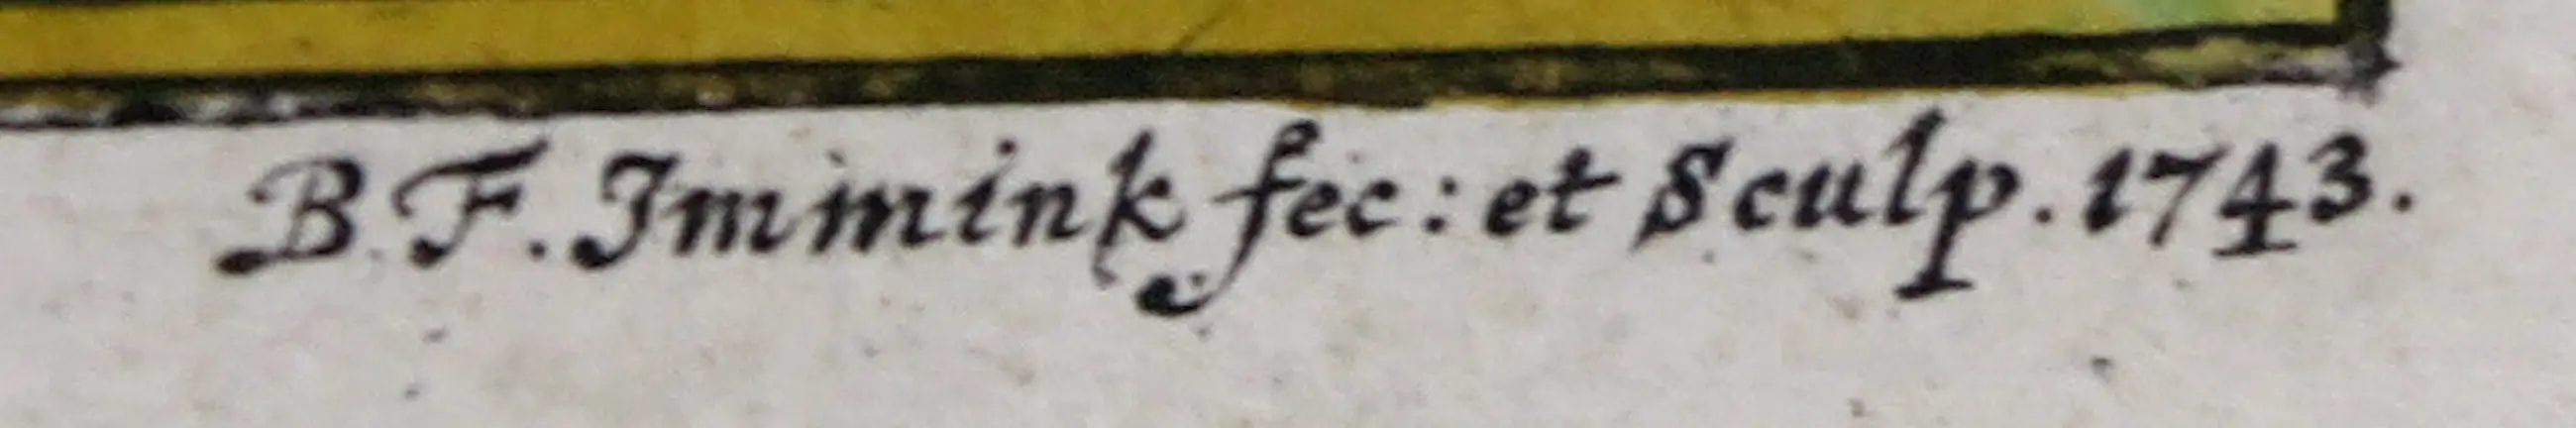 B. F. Immink fec: et Sculp. 1743.